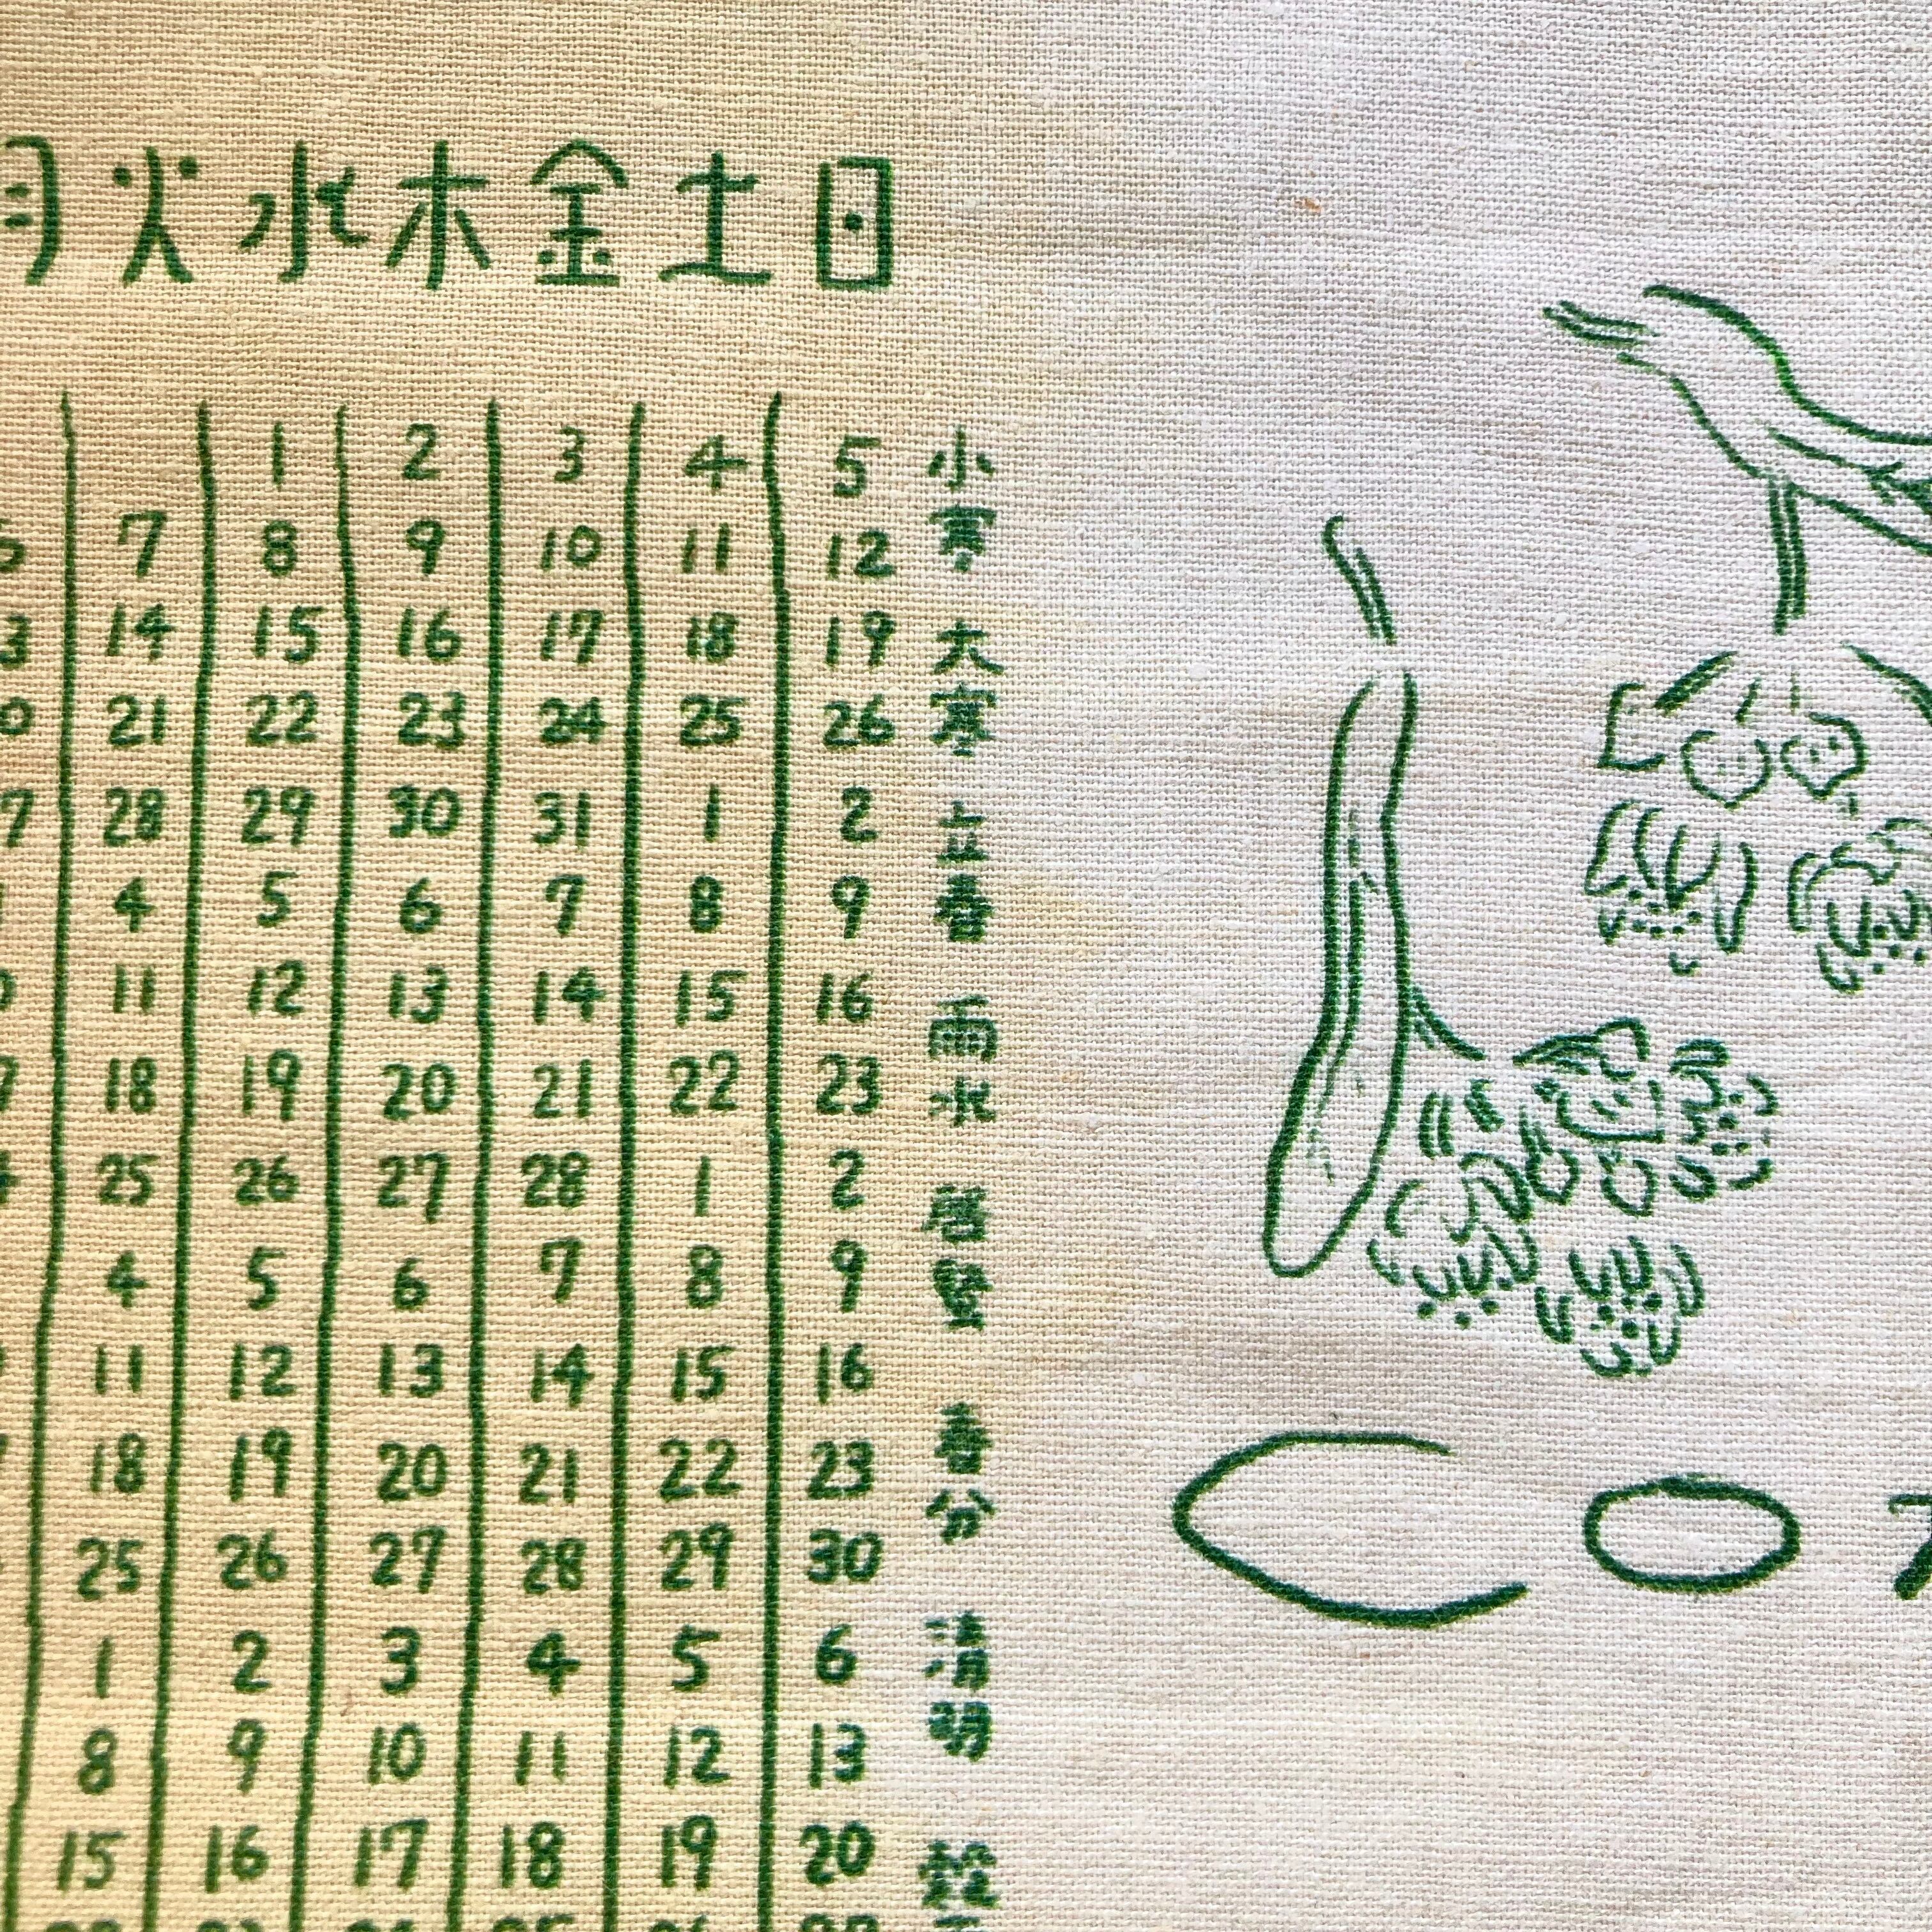 月火水木金土日
1 2 3 4 5
7 8 9 10 11 12
14 15 16 17 18 19
21 22 23 24 25 26
28 29 30 31 1 2
4 5 6 7 8 9
11 12 13 14 15 16
18 19 20 21 22 23
25 26 27 28 1 2
4 5 6 7 8 9
11 12 13 14 15 16
18 19 20 21 22 23
25 26 27 28 29 30
1 2 3 4 5 6
8 9 10 11 12 13
15 16 17 18 19 20
小寒
大寒
立春
雨水
啓蟄
春分
清明
穀
CO